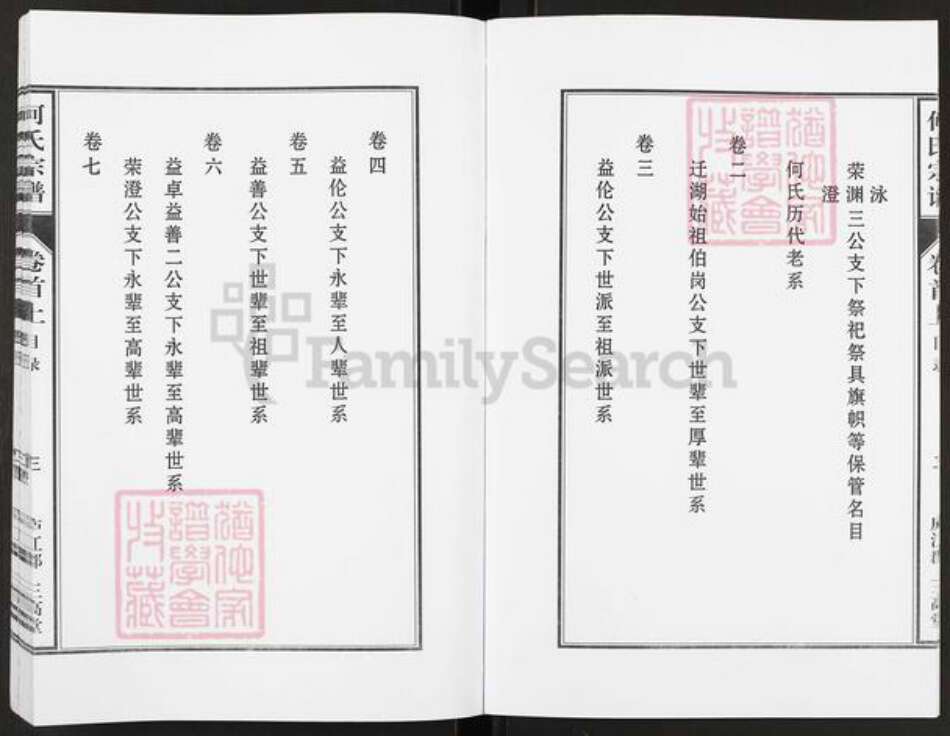 泳
荣渊三公支下祭祀祭具旗帜等保管名目
澄
何氏历代老系
卷二
迁湖始祖伯岗公支下世辈至厚辈世系
卷三
益伦公支下世派至祖派世系
卷四
益伦公支下永辈至人辈世系
卷五
益善公支下世辈至祖辈世系
卷六
益卓益善二公支下永辈至高辈世系
荣澄公支下永辈至高辈世系
卷七
何氏宗谱
卷首上
目录
三
譜學會
收藏
FamilySearch